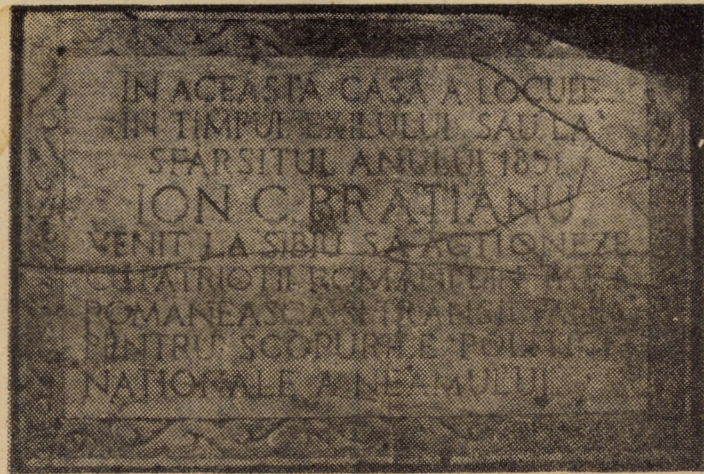 IN ACEASTA CASA A LOCUIT
IN TIMPUL EXILULUI SAU LA
SFARSITUL ANULUI 1851
ION C. BRATIANU
VENIT LA SIBIU SA ACTIONEZE
CU PATRIOTII ROMANI DIN TARA
ROMANEASCA SI TRANSILVANIA
PENTRU SCOPURILE POLITICE
NATIONALE A NEAMULUI